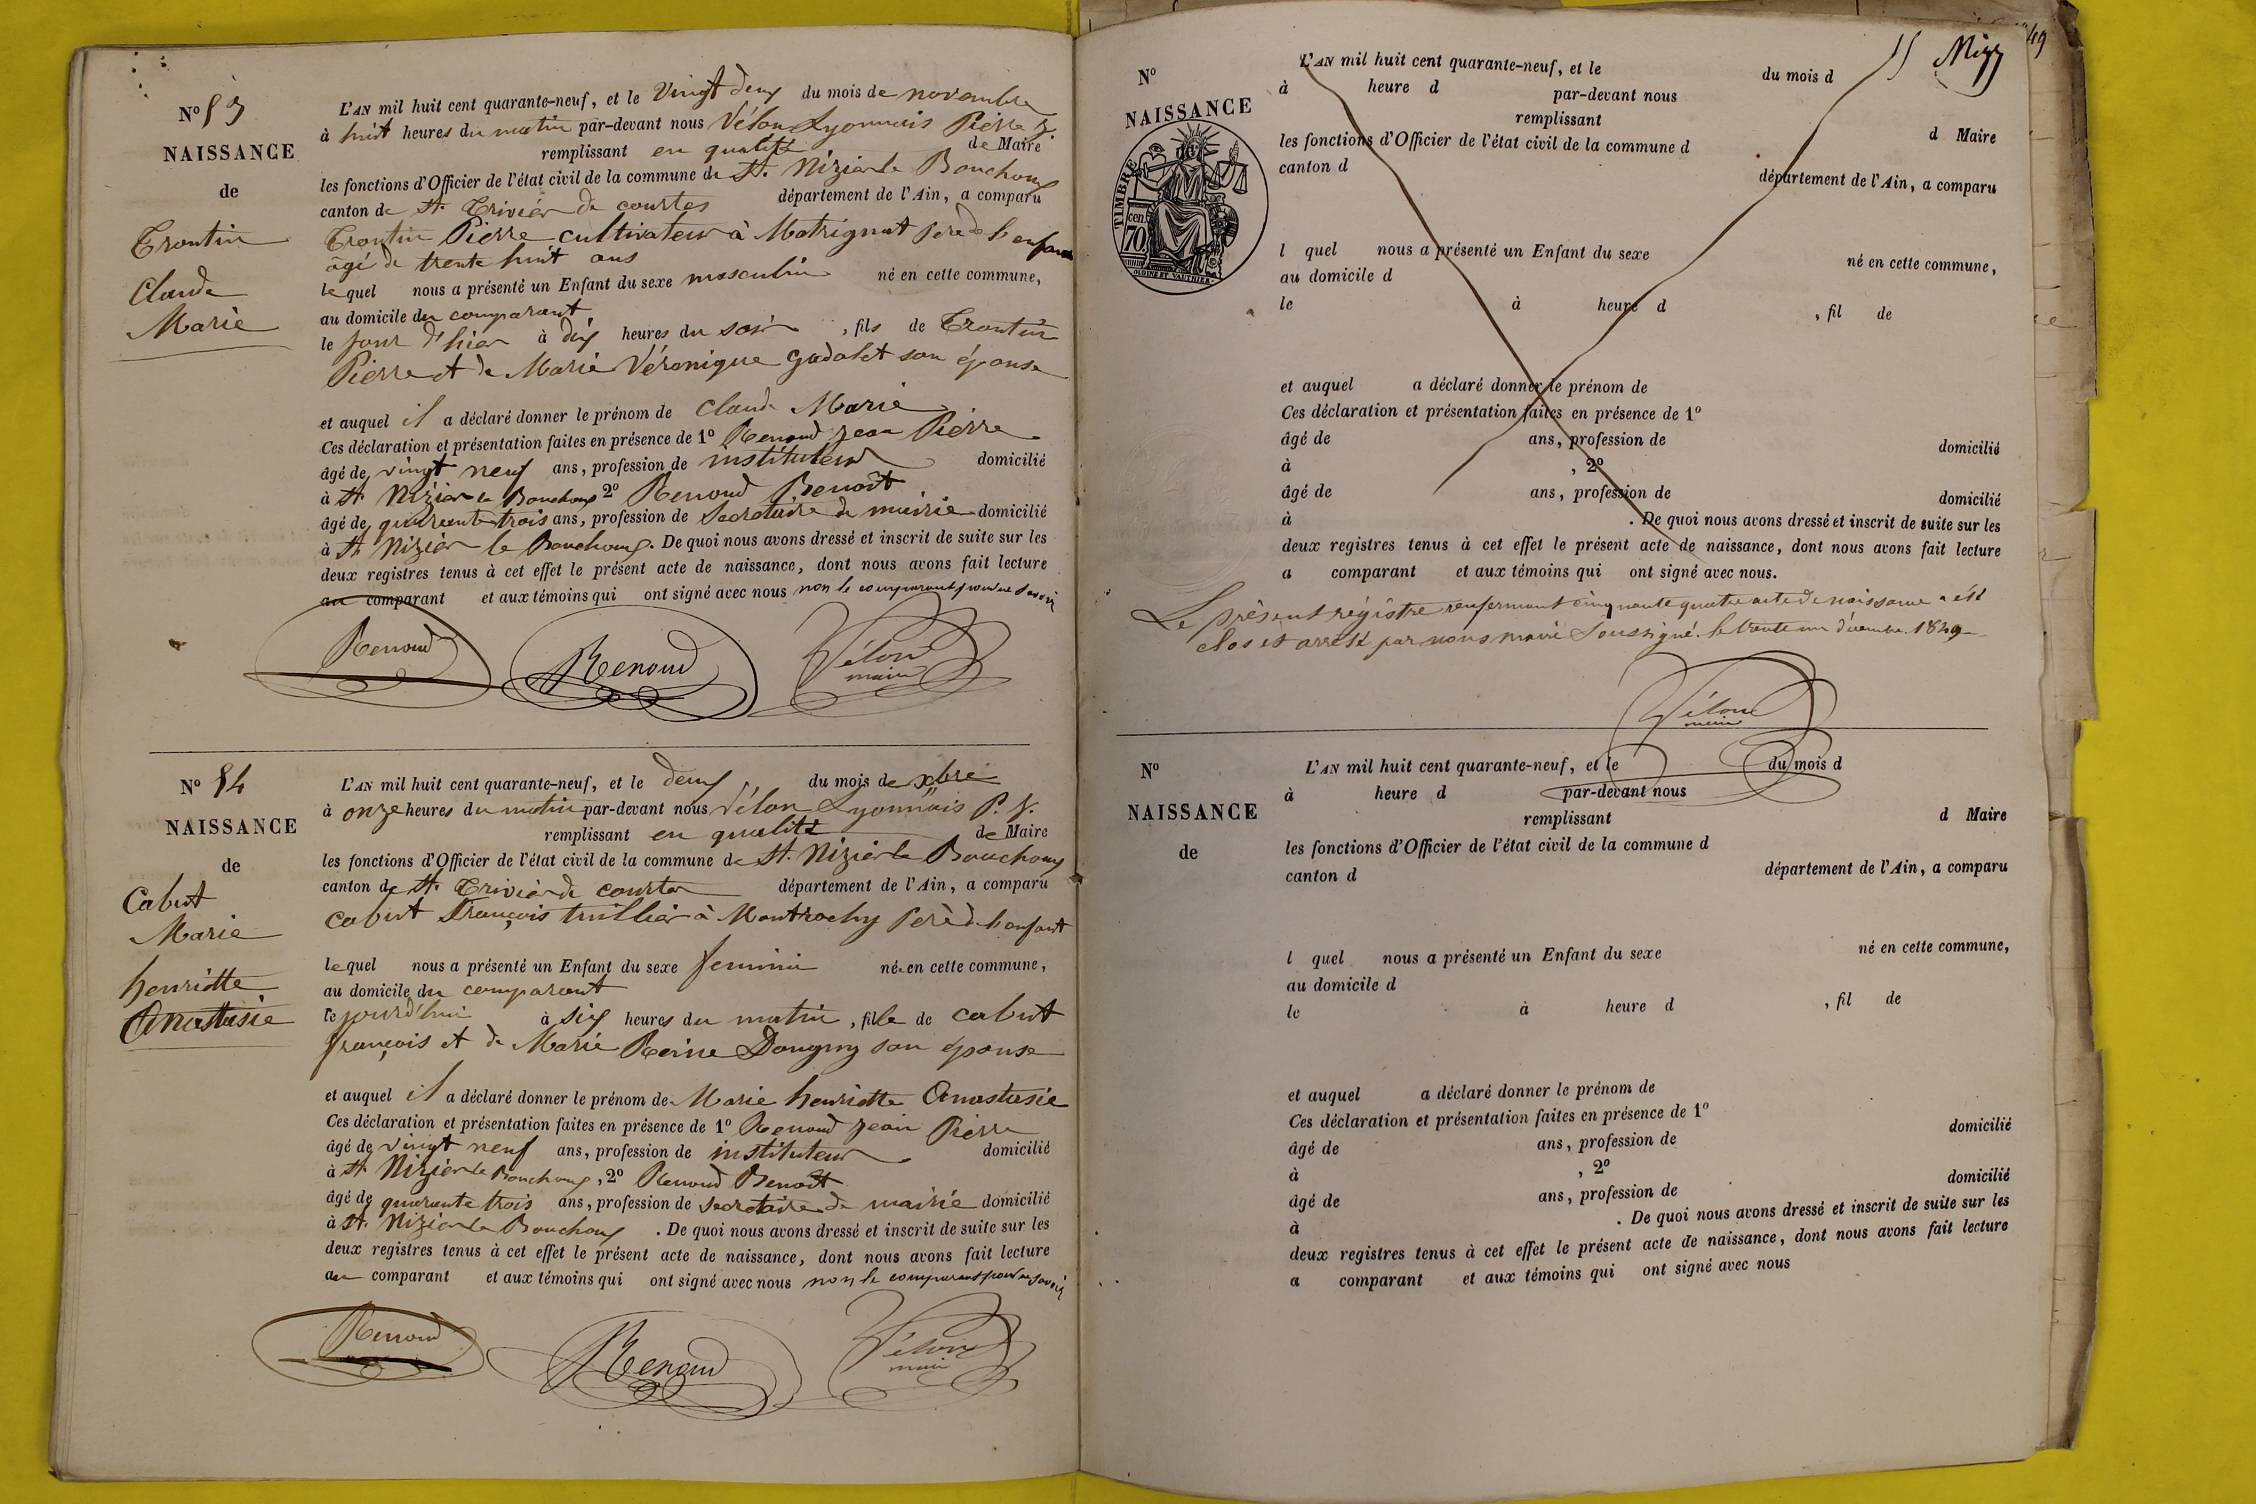 N° 53
NAISSANCE
de
Trontin
Claude
Marie
L'AN mil huit cent quarante-neuf, et le vingt deux du mois de novembre
à huit heures du matin par-devant nous Vélon Lyonnais Pierre J.
remplissant en qualité de Maire
les fonctions d'Officier de l'état civil de la commune de St. Nizier le Bouchoux
canton de St. Trivier de courtes département de l'Ain, a comparu
Trontin Pierre cultivateur à Matrignat père de l'enfant
âgé de trente huit ans
lequel nous a présenté un Enfant du sexe masculin né en cette commune,
au domicile du comparant
le jour d'hier à dix heures du soir, fils de Trontin
Pierre et de Marie Véronique Gadolet son épouse
et auquel il a déclaré donner le prénom de Claude Marie
Ces déclaration et présentation faites en présence de 1° Renoud jean Pierre
âgé de vingt neuf ans, profession de instituteur domicilié
à St Nizier le Bouchoux 2° Renoud Benoît
âgé de quarante trois ans, profession de Secrétaire de mairie domicilié
à St Nizier le Bouchoux. De quoi nous avons dressé et inscrit de suite sur les
deux registres tenus à cet effet le présent acte de naissance, dont nous avons fait lecture
au comparant et aux témoins qui ont signé avec nous non le comparant pour ne savoir
Renoud Renoud Vélon
maire
N° 54
NAISSANCE
de
Cabut
Marie
henriette
Anastasie
L'AN mil huit cent quarante-neuf, et le deux du mois de xbre
à onze heures du matin par-devant nous Vélon Lyonnais P. J.
remplissant en qualité de Maire
les fonctions d'Officier de l'état civil de la commune de St. Nizier le Bouchoux
canton de St. Trivier de courtes département de l'Ain, a comparu
Cabut François tuillier à Montrachy père de l'enfant
lequel nous a présenté un Enfant du sexe feminin né en cette commune,
au domicile du comparant
le jourd'hui à six heures du matin, fille de Cabut
françois et de Marie Reine Dougny son épouse
et auquel il a déclaré donner le prénom de Marie henriette Anastasie
Ces déclaration et présentation faites en présence de 1° Renoud jean Pierre
âgé de vingt neuf ans, profession de instituteur domicilié
à St Nizier le Bouchoux, 2° Renoud Benoît
âgé de quarante trois ans, profession de secrétaire de mairie domicilié
à St. Nizier le Bouchoux. De quoi nous avons dressé et inscrit de suite sur les
deux registres tenus à cet effet le présent acte de naissance, dont nous avons fait lecture
au comparant et aux témoins qui ont signé avec nous non le comparant pour ne savoir
Renoud Renoud Vélon
maire
49
N°
NAISSANCE
TIMBRE
cen.
70.
OUDINÉ ET VAUTHIER
L'AN mil huit cent quarante-neuf, et le du mois d
à heure d par-devant nous
remplissant d Maire
les fonctions d'Officier de l'état civil de la commune d
canton d département de l'Ain, a comparu
l quel nous a présenté un Enfant du sexe né en cette commune,
au domicile d
le à heure d , fil de
et auquel a déclaré donner le prénom de
Ces déclaration et présentation faites en présence de 1°
âgé de ans, profession de domicilié
à , 2°
âgé de ans, profession de domicilié
à . De quoi nous avons dressé et inscrit de suite sur les
deux registres tenus à cet effet le présent acte de naissance, dont nous avons fait lecture
a comparant et aux témoins qui ont signé avec nous.
Le présent régistre renfermant cinquante quatre acte de naissance a été
clos et arrêté par nous maire soussigné. le trente un décembre 1849
Vélon
maire
N°
NAISSANCE
de
L'AN mil huit cent quarante-neuf, et le du mois d
à heure d par-devant nous
remplissant d Maire
les fonctions d'Officier de l'état civil de la commune d
canton d département de l'Ain, a comparu
l quel nous a présenté un Enfant du sexe né en cette commune,
au domicile d
le à heure d , fil de
et auquel a déclaré donner le prénom de
Ces déclaration et présentation faites en présence de 1°
âgé de ans, profession de domicilié
à , 2°
âgé de ans, profession de domicilié
à . De quoi nous avons dressé et inscrit de suite sur les
deux registres tenus à cet effet le présent acte de naissance, dont nous avons fait lecture
a comparant et aux témoins qui ont signé avec nous